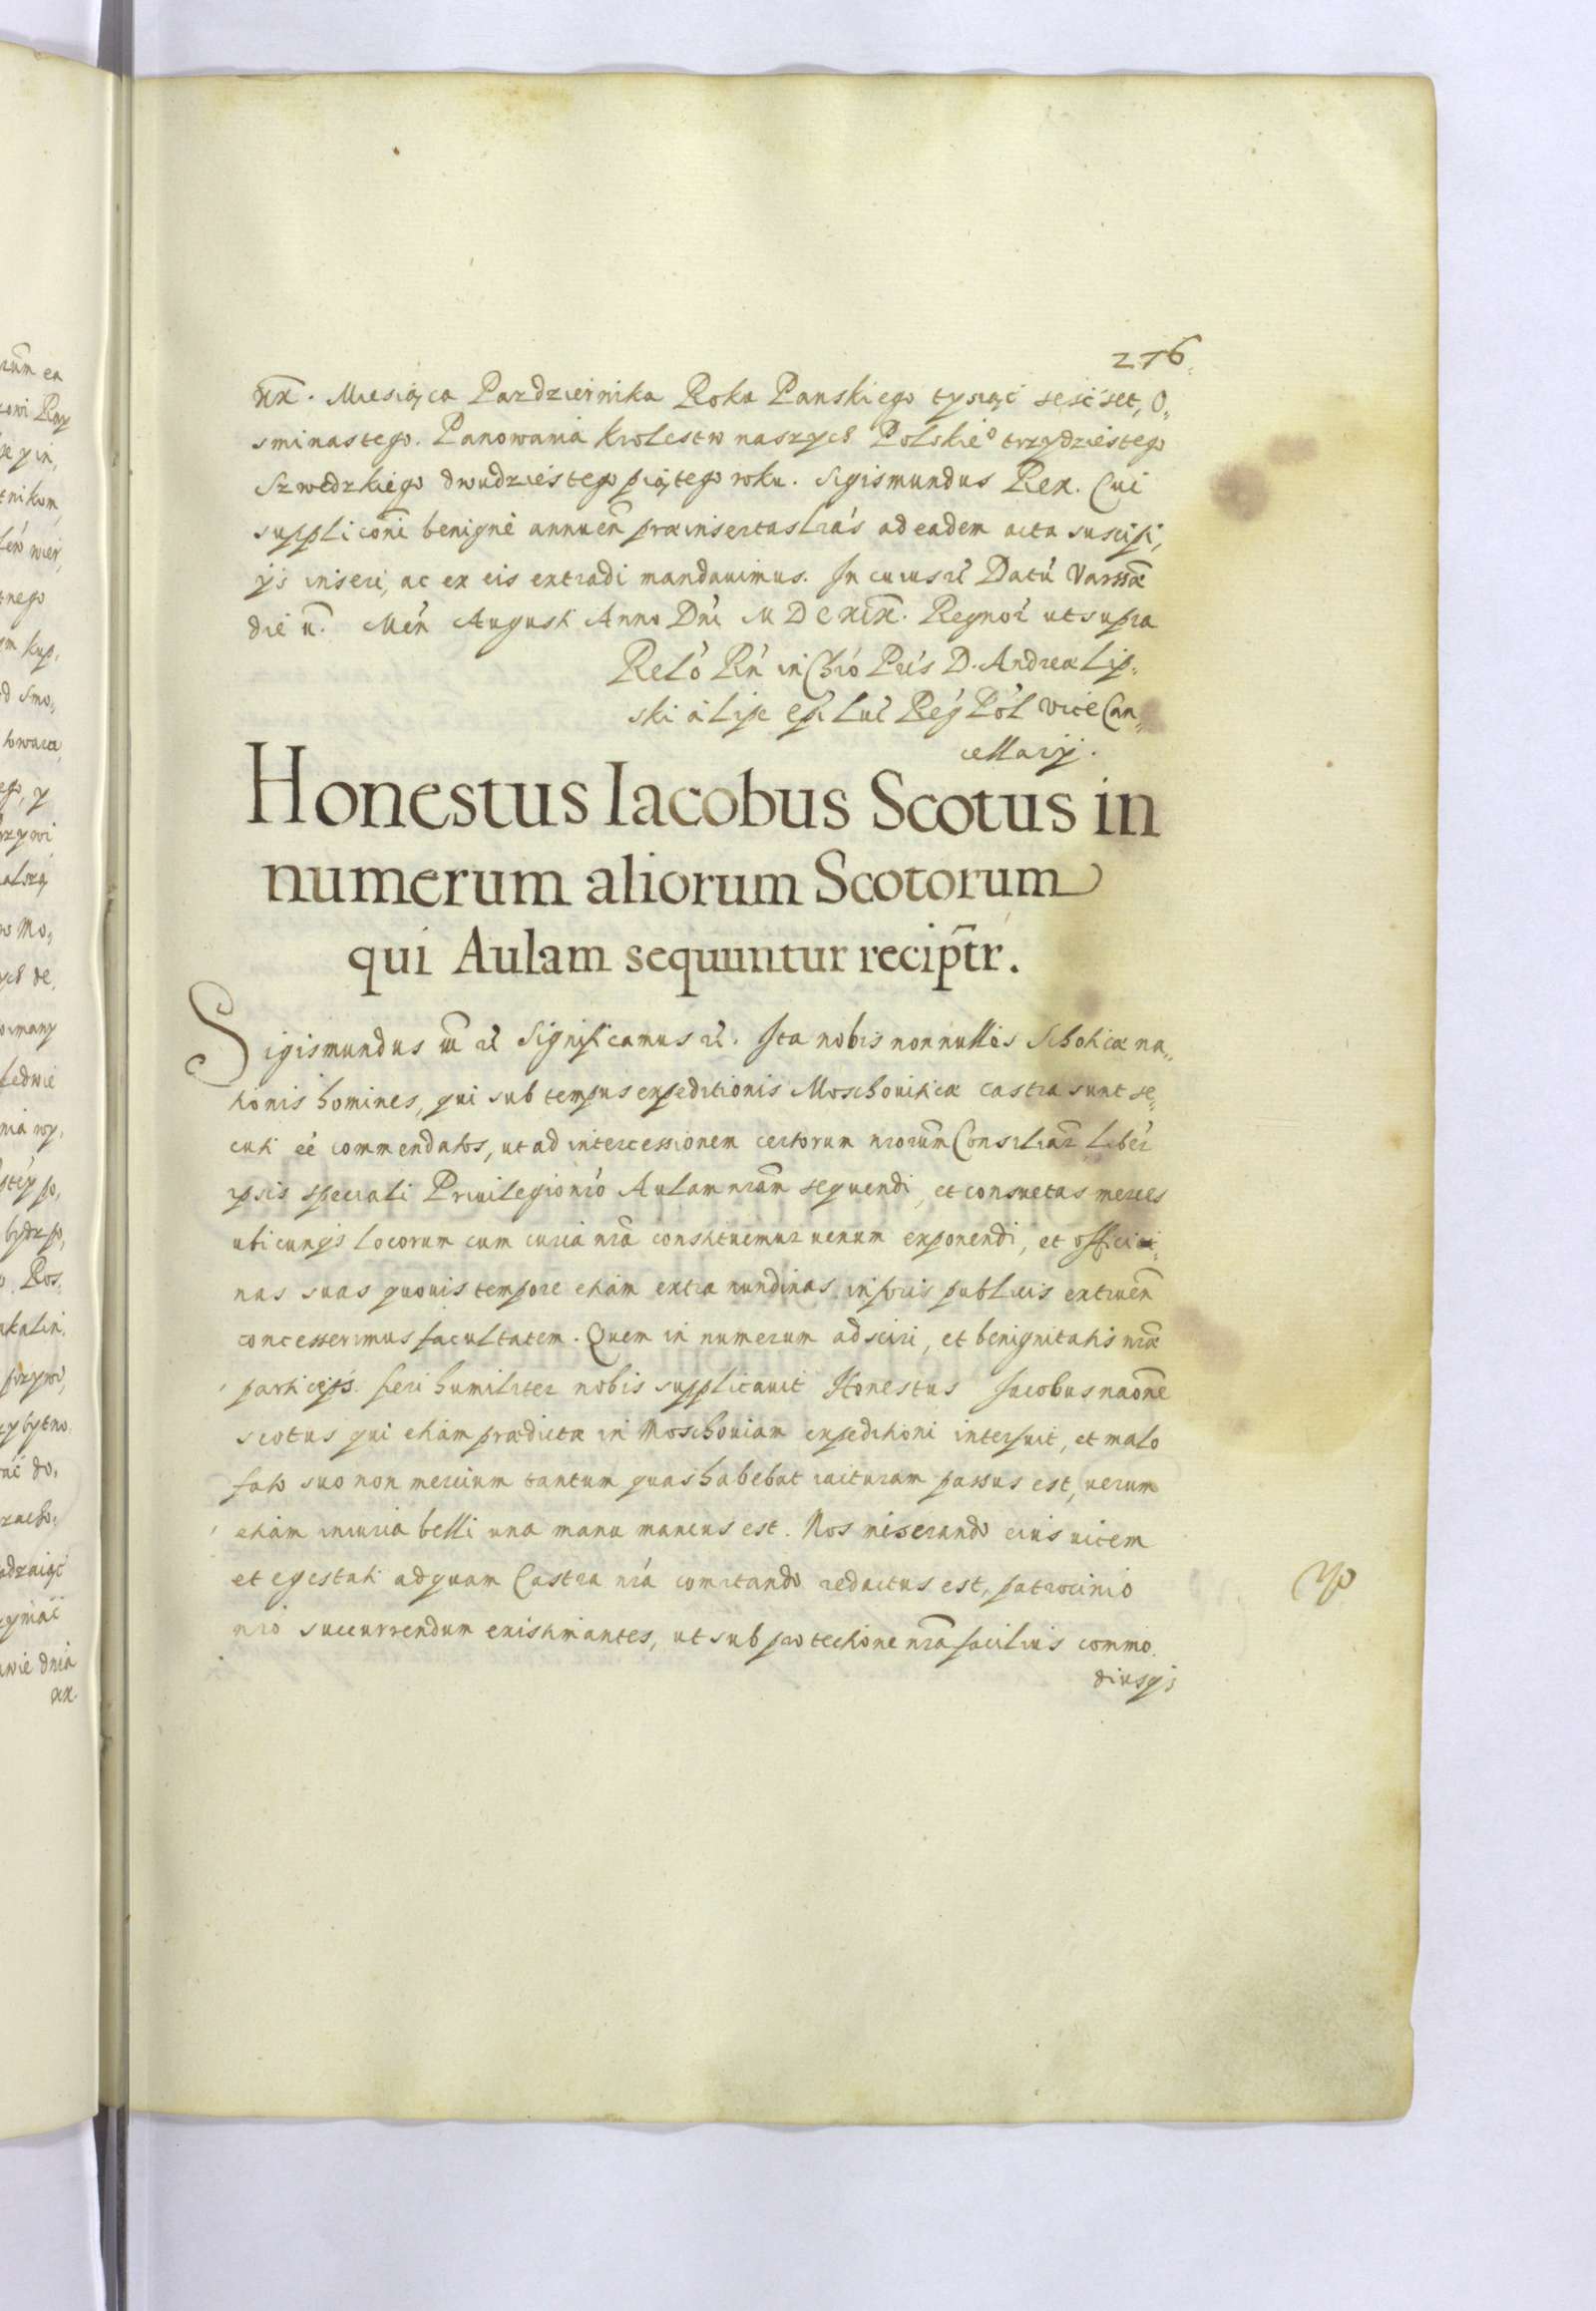 276
xx. Miesiąca Pazdziernika Roku Panskiego tysiąc sescset, O,
sminastego. Panowania krolestw naszych Polskieº trzydziestego
Szwedzkiego dwudziestego piątego roku. Sigismundus Rex. Cui
suppliconi benigne annuen præinsertas lrás ad eadem acta suscipi,
ijs inseri, ac ex eis extradi mandauimus. In cuius rĕ Datū Varssæ
die ii. Men Augusti Anno Dni M DC XIX. Regnor ut supra
Relo Rn in Chro Pris D. Andreæ Lip,
ski à Lipe Epi Luc Reg Pol vice Can,
cellarij.
Honestus Iacobus Scotus in
numerum aliorum Scotorum
qui Aulam sequuntur reciptr.
Sigismundus iii rĕ Significamus rĕ. Ita nobis nonnullos Schoticæ na,
tionis homines, qui sub tempus expeditionis Moschouiticæ castra sunt se,
cuti éé commendatos, ut ad intercessionem certorum nrorum Consiliar liber
ipsis speciali Priuilegio nró Aulam nram sequendi, et consuetas merces
ubicunqs locorum cum curia nra constituemur uenum exponendi, et officii
nas suas quouis tempore etiam extra nundinas in foris publicis extruen
concesserimus facultatem. Quem in numerum adsciri, et benignitatis nræ
particeps fieri humiliter nobis supplicauit Honestus Iacobus naone
scotus qui etiam prædictæ in Moschouiam expeditioni interfuit, et malo
fato suo non mercium tantum quas habebat iacturam passus est, uerum
etiam iniuria belli una manu mancus est. Nos miserando eius uicem
et egestati ad quam Castra nra comitando redactus est, patrocinio
nro succurrendum existimantes, ut sub protectione nra facilius commo
diusqs